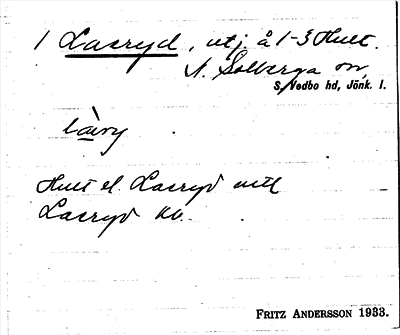 1 Lacryd, utj. å 1-3 Hult.
N. Solberga sn,
S. Vedbo hd, Jönk. l.
Hult el. Lacryd intill
Lacryd kv.
FRITZ ANDERSSON 1933.